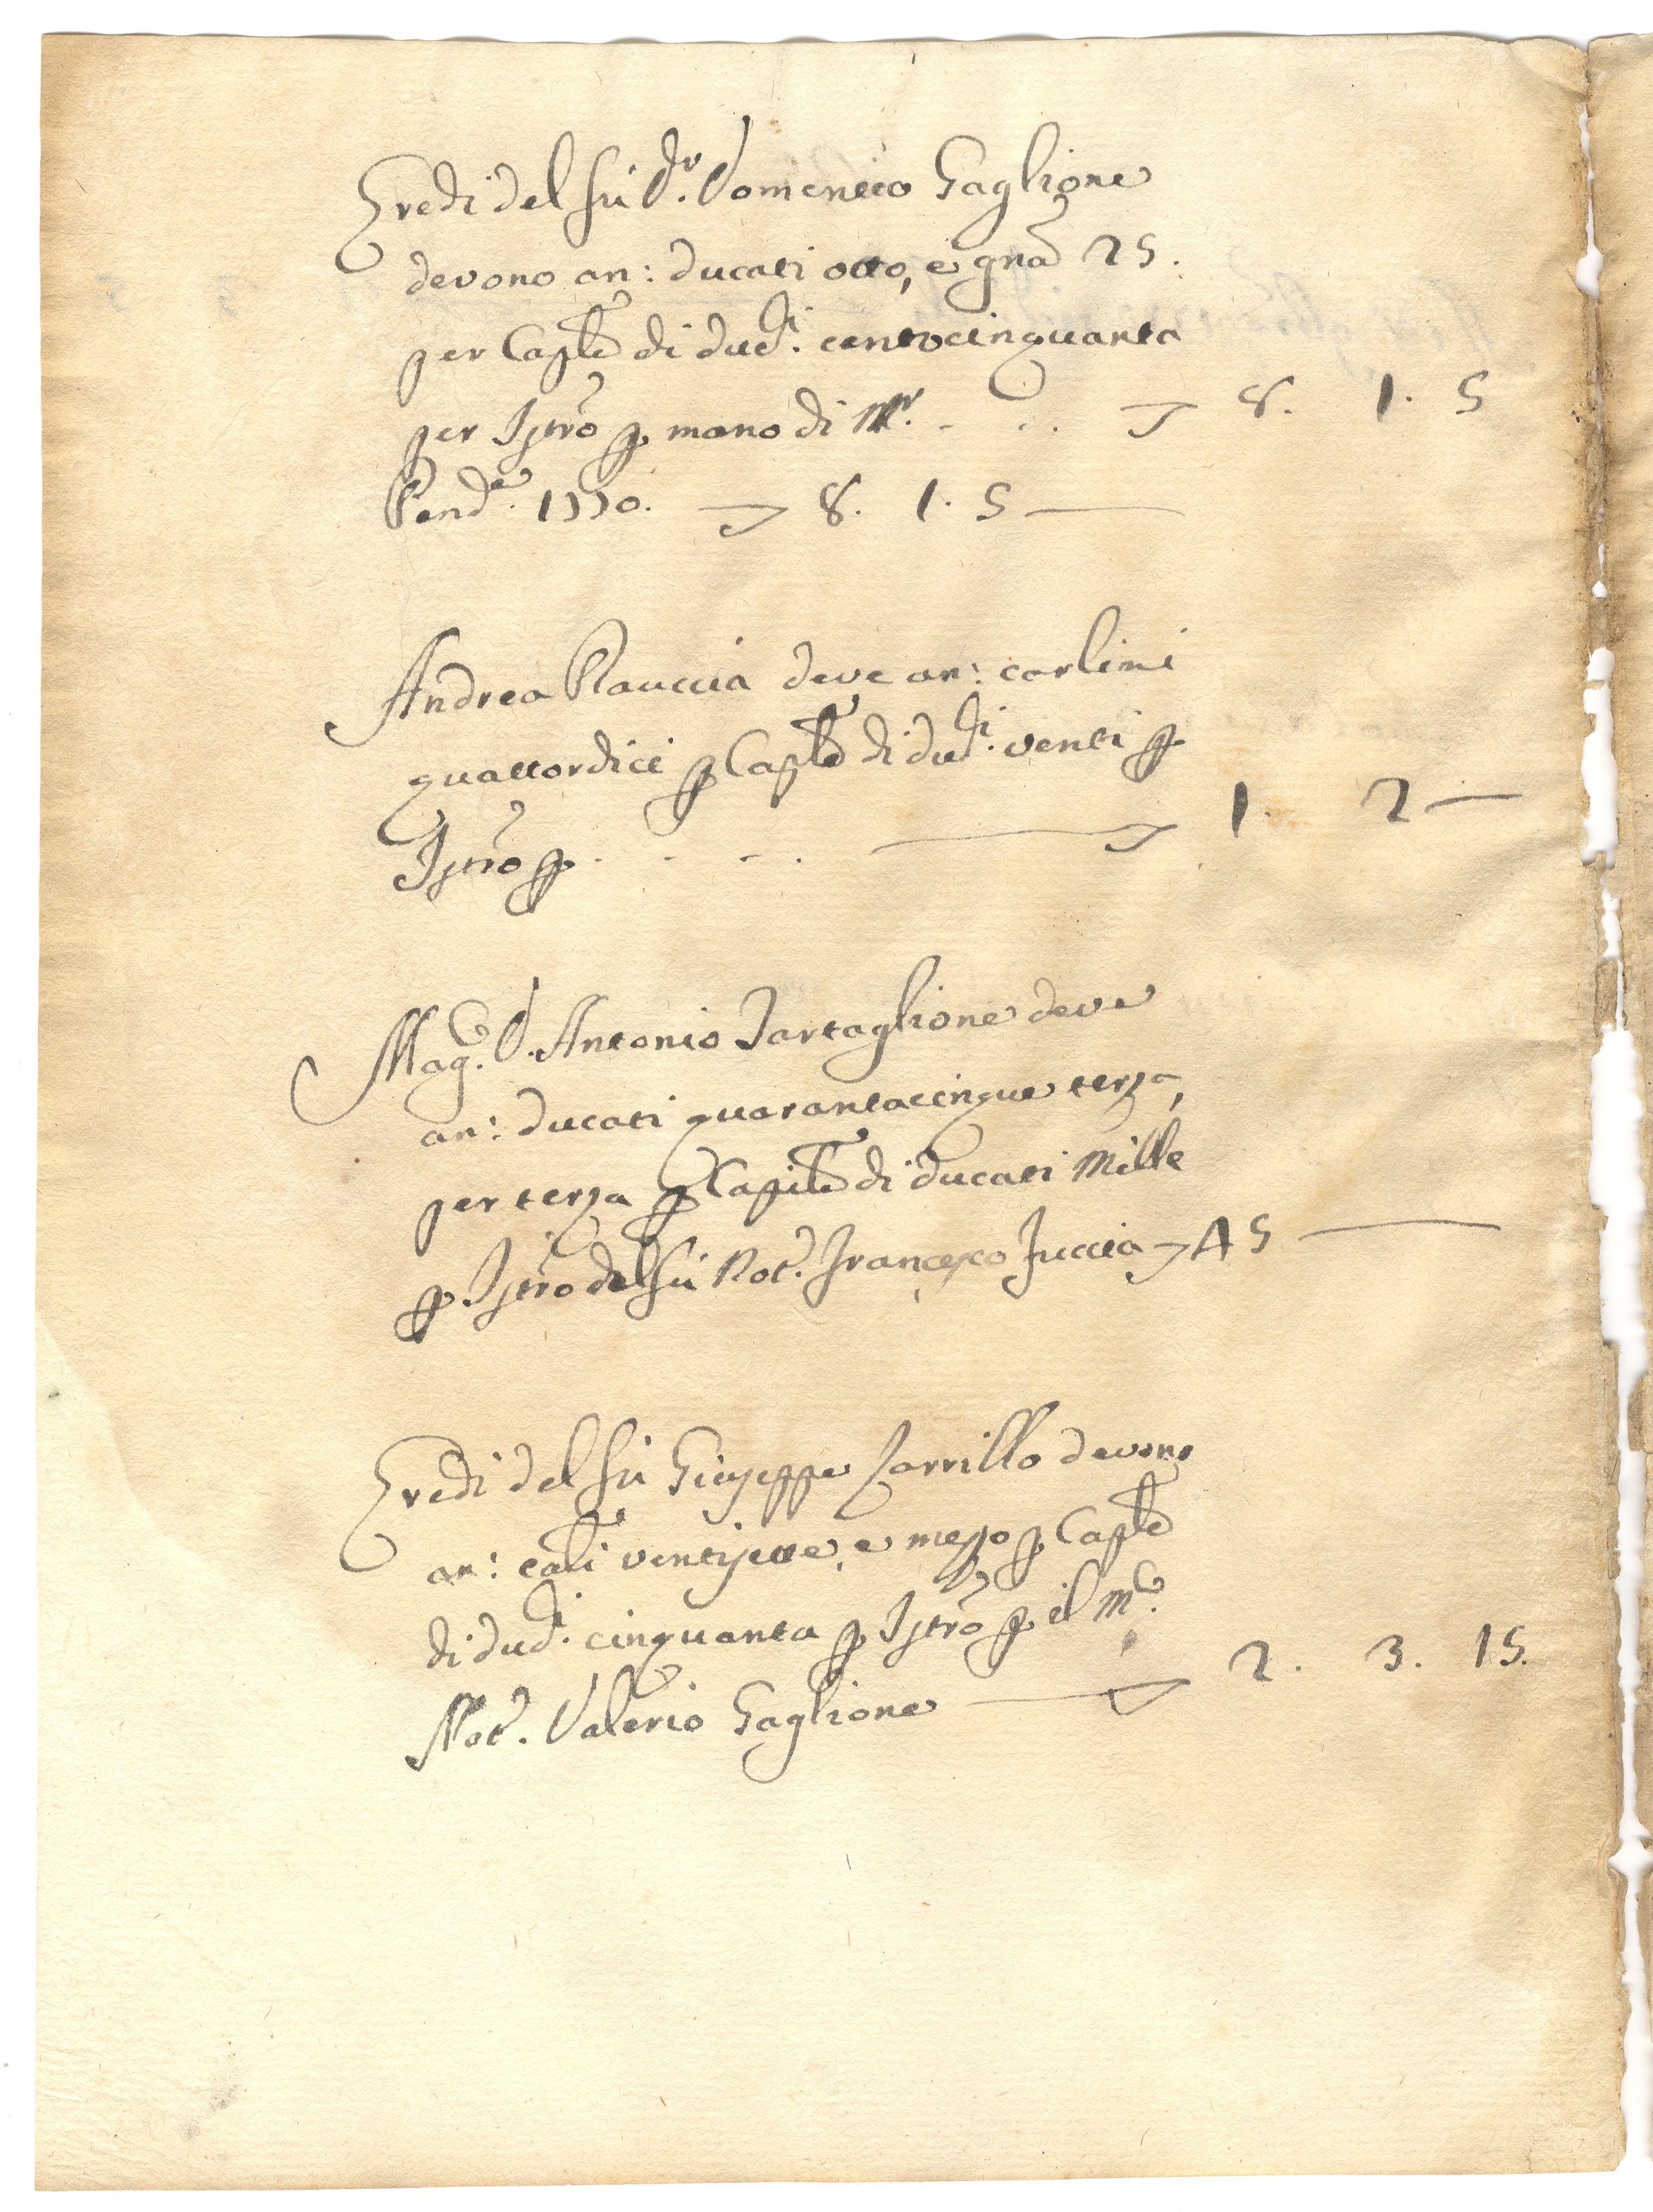 Eredi del fù D.r Domenico Gaglione
devono an: ducati otto, e gña 25.
per Cap̃le di duc.ti centocinquanta
per Istrõ p. mano di M.r - . . 8. 1. 5
Pend.e 1770. 8. 1. 5 —
Andrea Rauccia deve an: carlini
quattordici p Cap̃le di duc.ti venti p
Istrõ p. . - - . 1. 2 —
Mag.co D. Antonio Tartaglione deve
an: ducati quarantacinque terza,
per terza p Capitl̃e di ducati Mille
p Istrõ del fù Not.r Francesco Iuccia 45 —
Eredi del fù Giuseppe Carrillo devono
an: carl̃i ventisette, e mezzo p Cap̃le
di duc.ti cinquanta p Istrõ p. il M.co
Not.r Valerio Gaglione — 2. 3. 15.